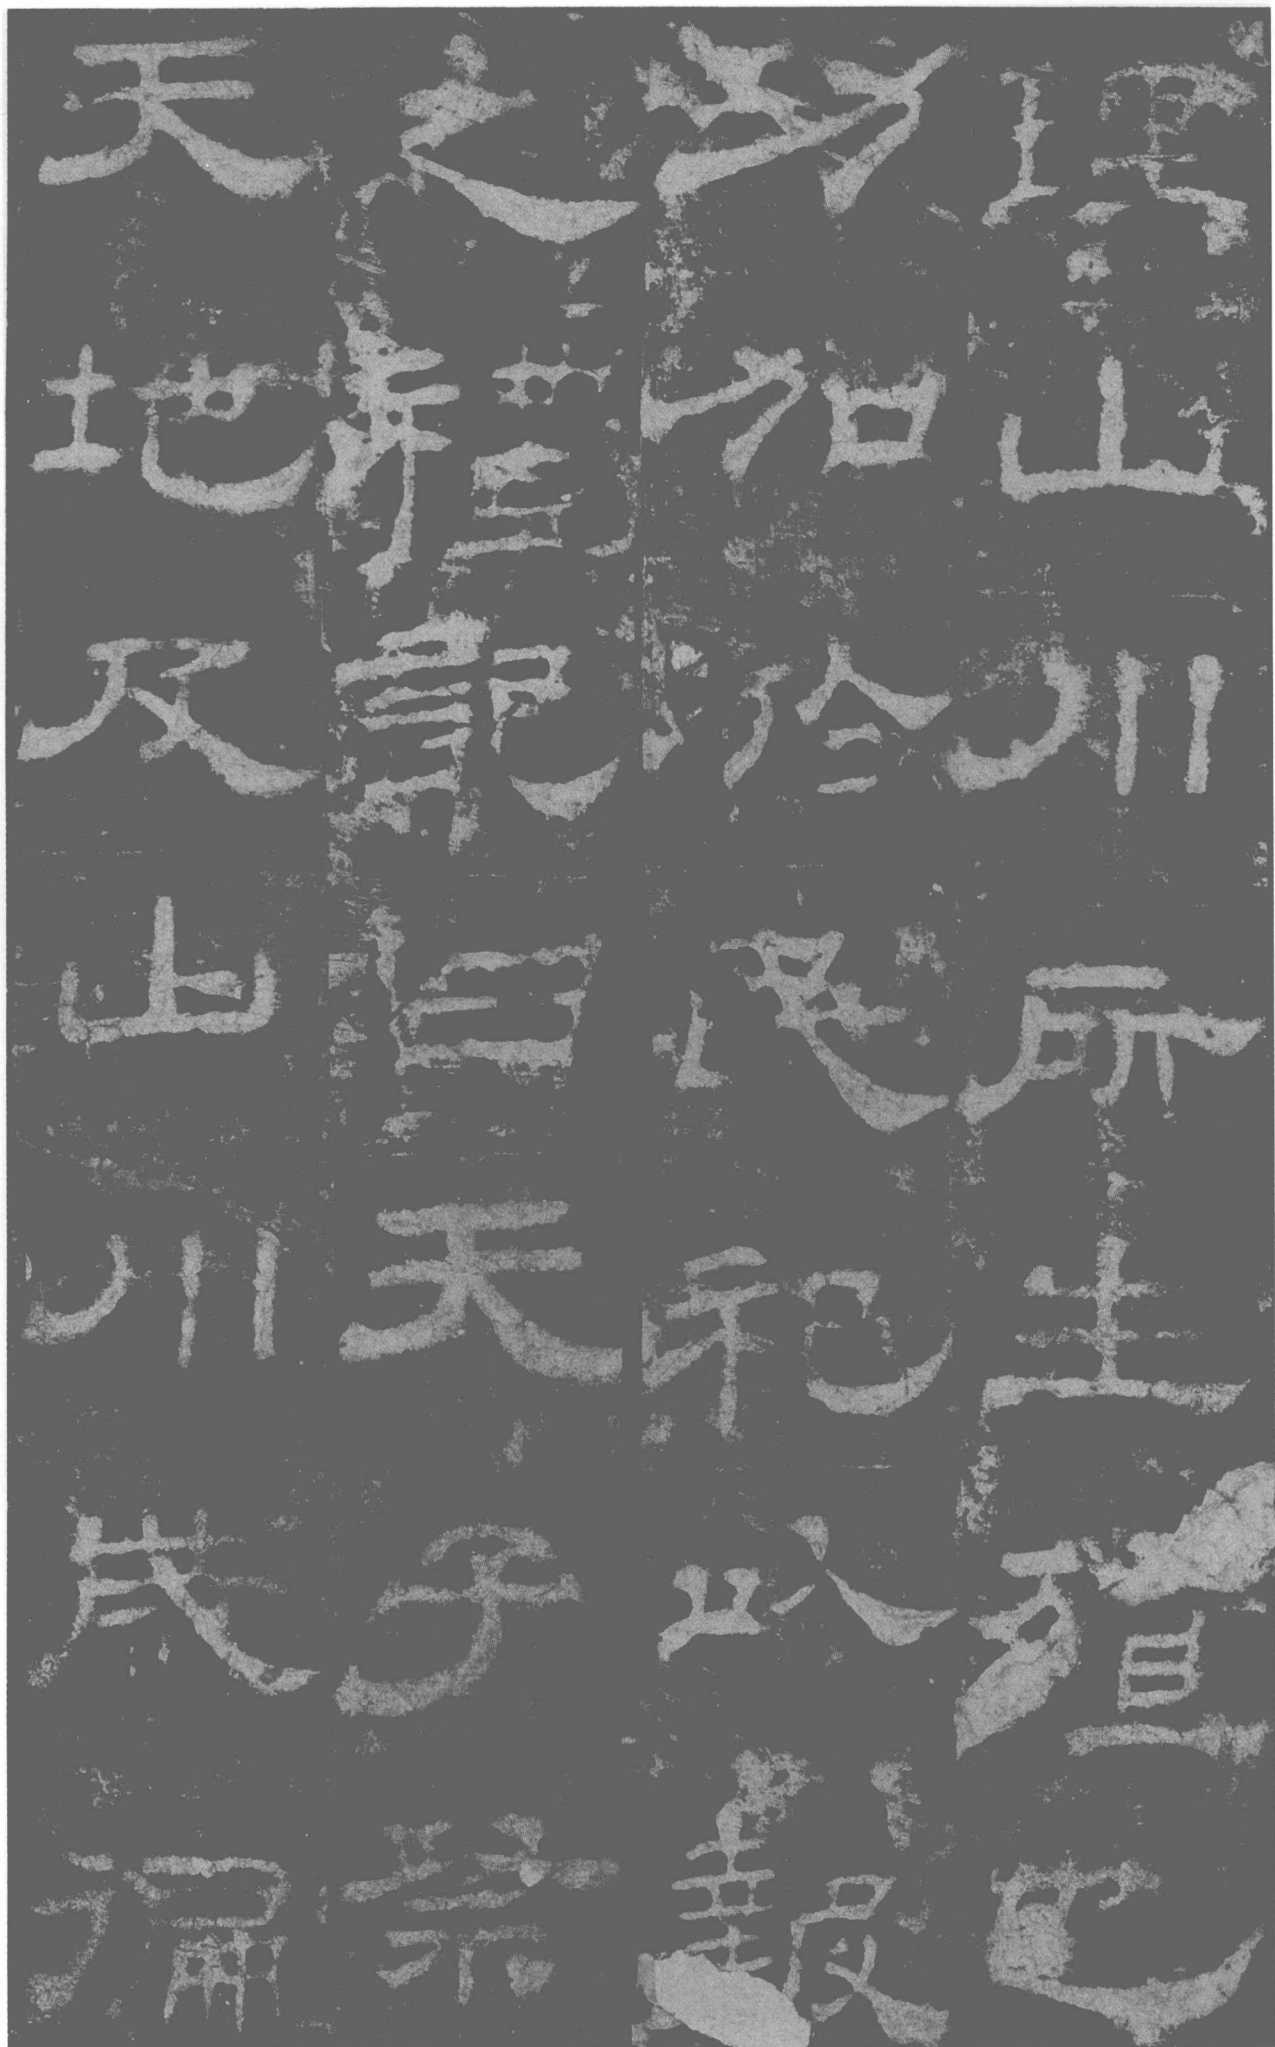 理山川所生殖也
功加於民祀以報
之禮記曰天子祭
天地及山川歲徧